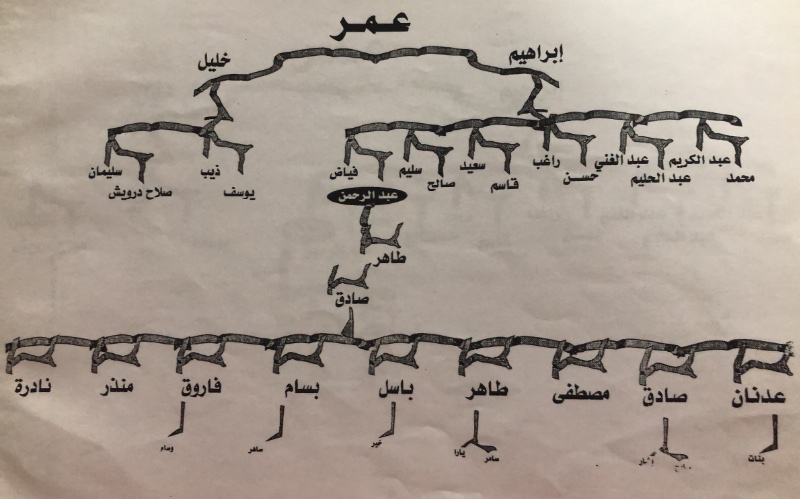 عمر
إبراهيم خليل
محمد عبد الكريم عبد الحليم عبد الغني حسن راغب قاسم سعيد صالح سليم فياض يوسف ذيب صلاح درويش سليمان
عبد الرحمن
طاهر
صادق
عدنان صادق مصطفى طاهر باسل بسام فاروق منذر نادرة
بنات سامر يارا خير سامر وسام